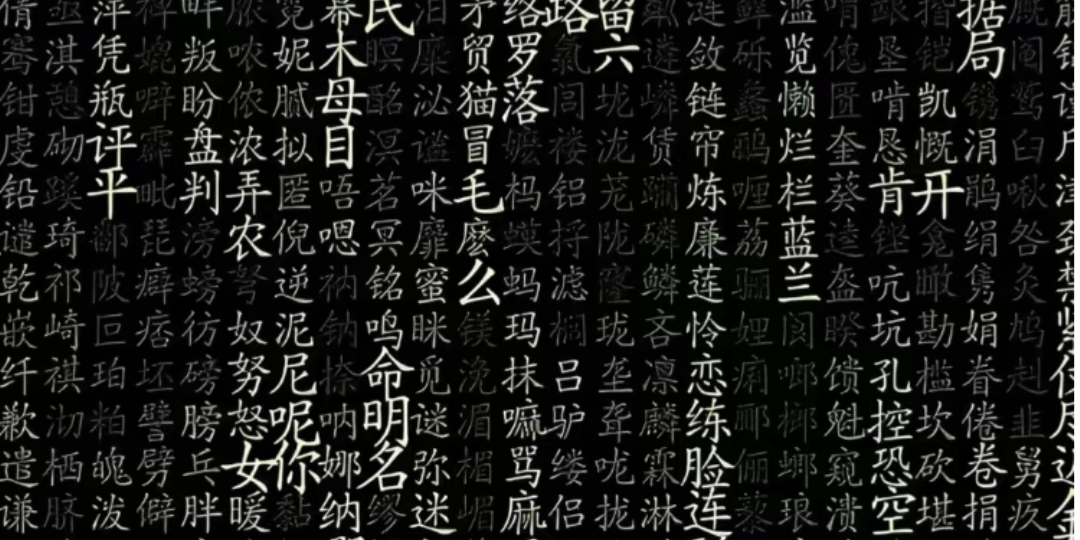 萍 畔 幕 民 矛 络 路 留 涟 滥 啃 跟 揩 据
骞 淇 凭 媲 叛 哝 妮 木 暝 糜 贸 罗 氯 六 遴 敛 砾 览 傀 垦 铠 局 阎
钳 憩 瓶 噼 盼 侬 腻 母 酩 泌 猫 落 闾 垅 嶙 链 蠡 懒 啃 凯 锔 鹫
虔 砌 评 霹 盘 浓 拟 目 溟 谧 冒 嬷 楼 泷 赁 帘 鹂 烂 奎 恳 慨 涓 臼
铅 蹊 平 毗 判 弄 匿 唔 茗 咪 毛 杩 铝 茏 躏 炼 喱 栏 葵 肯 开 鹃 啾
谴 琦 鄱 琵 滂 农 倪 嗯 冥 靡 麽 蟆 捋 陇 磷 廉 荔 蓝 逵 铿 龛 绢 咎
乾 祁 陂 癖 螃 弩 逆 衲 铭 蜜 么 蚂 滤 窿 鳞 莲 骊 兰 盔 吭 瞰 隽 灸
嵌 崎 叵 痞 彷 奴 泥 钠 鸣 眯 镁 玛 榈 珑 吝 怜 娌 阆 睽 坑 勘 娟 鸠
纤 祺 珀 坯 磅 努 尼 捺 命 觅 浼 抹 吕 垄 凛 恋 痢 啷 馈 孔 槛 眷 赳
歉 沏 粕 譬 膀 怒 呢 呐 明 谜 湄 嘛 驴 聋 麟 练 郦 榔 魁 控 坎 倦 韭
遣 栖 魄 劈 乓 女 你 娜 名 弥 楣 骂 缕 咙 霖 脸 俪 螂 窥 恐 砍 卷 舅
谦 脐 泼 僻 胖 暖 黏 纳 缪 迷 嵋 麻 侣 拢 淋 连 藜 琅 溃 空 堪 捐 疚